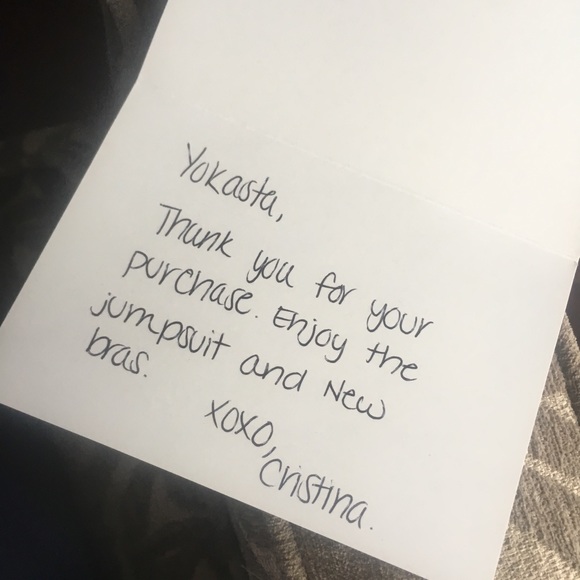 Yokasta,
Thank you for your
purchase. Enjoy the
jumpsuit and New
bras.
xoxo,
Cristina.